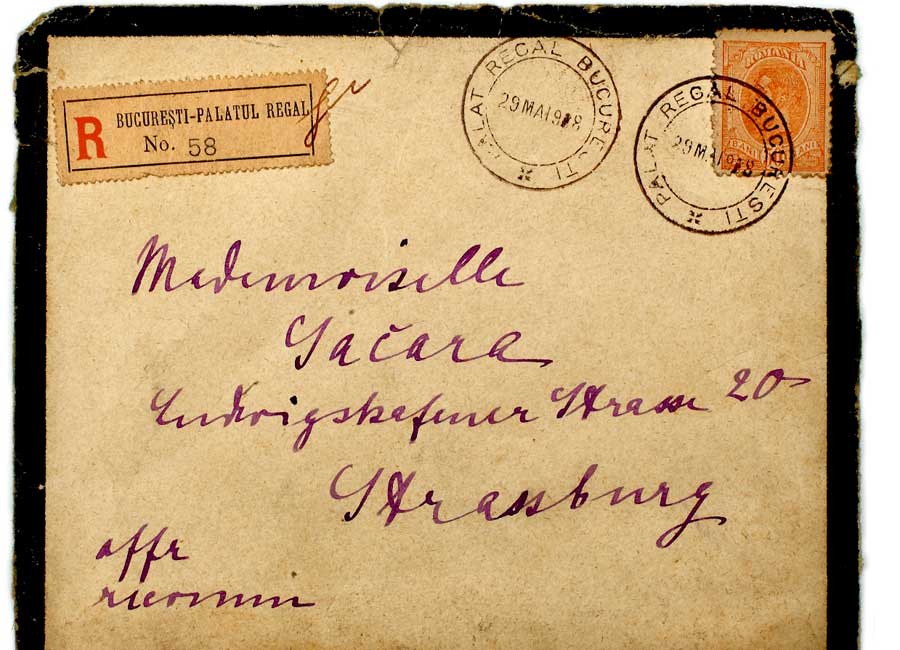 R
BUCUREŞTI-PALATUL REGAL
No. 58
PALAT REGAL BUCUREȘTI
29 MAI 918
PALAT REGAL BUCUREȘTI
29 MAI 918
ROMANIA
BANI
Mademoiselle
Sačara
Ludwigshafener Strasse 20
Strassburg
affr
ricomm